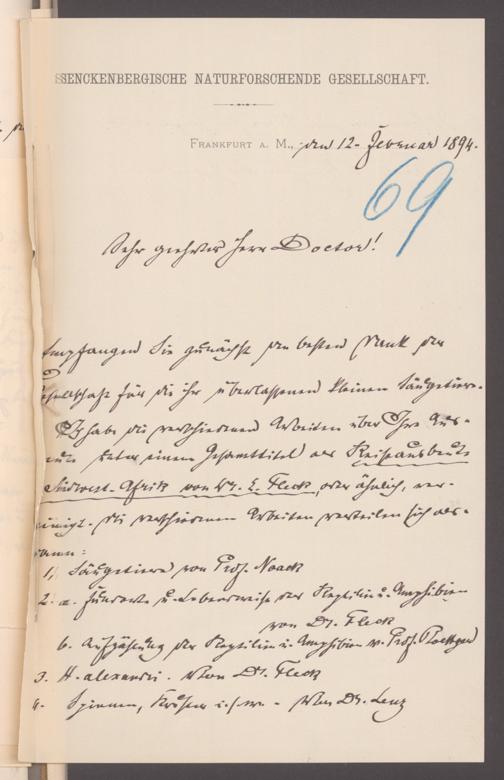 SSENCKENBERGISCHE NATURFORSCHENDE GESELLSCHAFT.
FRANKFURT A. M., den 12. Februar 1894.
69
Sehr geehrter Herr Doctor!
Empfangen Sie zunächst den besten Dank der
esellschaft für die ihr überlassenen kleinen Säugetiere.
Ich habe die verschiedenen Arbeiten über Ihre Aus-
beute unter einem Gesamttitel als Reiseausbeute
Südwest-Afrika von Dr. E. Fleck, oder ähnlich, ver-
einigt. Die verschiedenen Arbeiten verteilen sich als-
dann:
1, Säugetiere von Prof. Noack
2. a. Fundorte u. Lebensweise der Reptilien u. Amphibien
von Dr. Fleck
b. Aufzählung der Reptilien u. Amphibien v. Prof. Boettger
3. H. alexandri. Von Dr. Fleck
4. Spinnen, Krebse u.s.w. - Von Dr. Lenz